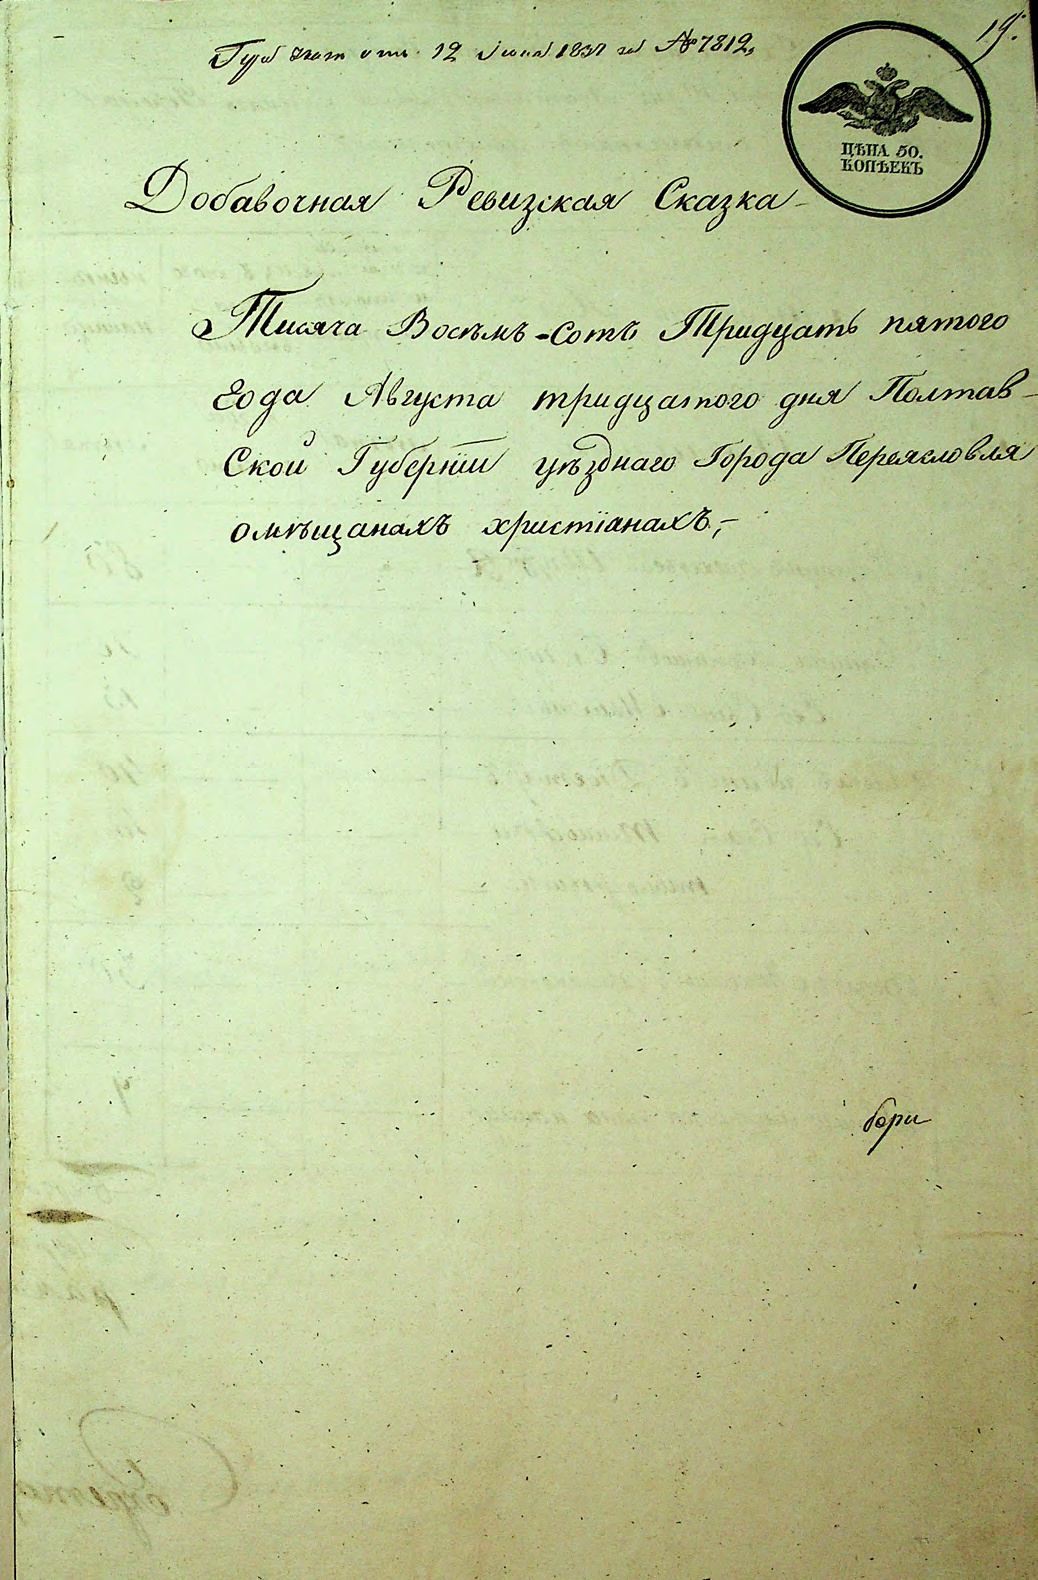 19.
отъ 12 1837 № 7812,
ЦѢНА 50.
КОПѢЕКЪ
Добавочная Ревизская Сказка
Тисяча Восѣмъ-сотъ Тридцать пятого
года Августа тридцатого дня Полтав-
Ской Губерніи уѣзднаго Города Переясловля
омѣщанахъ христіанахъ,-